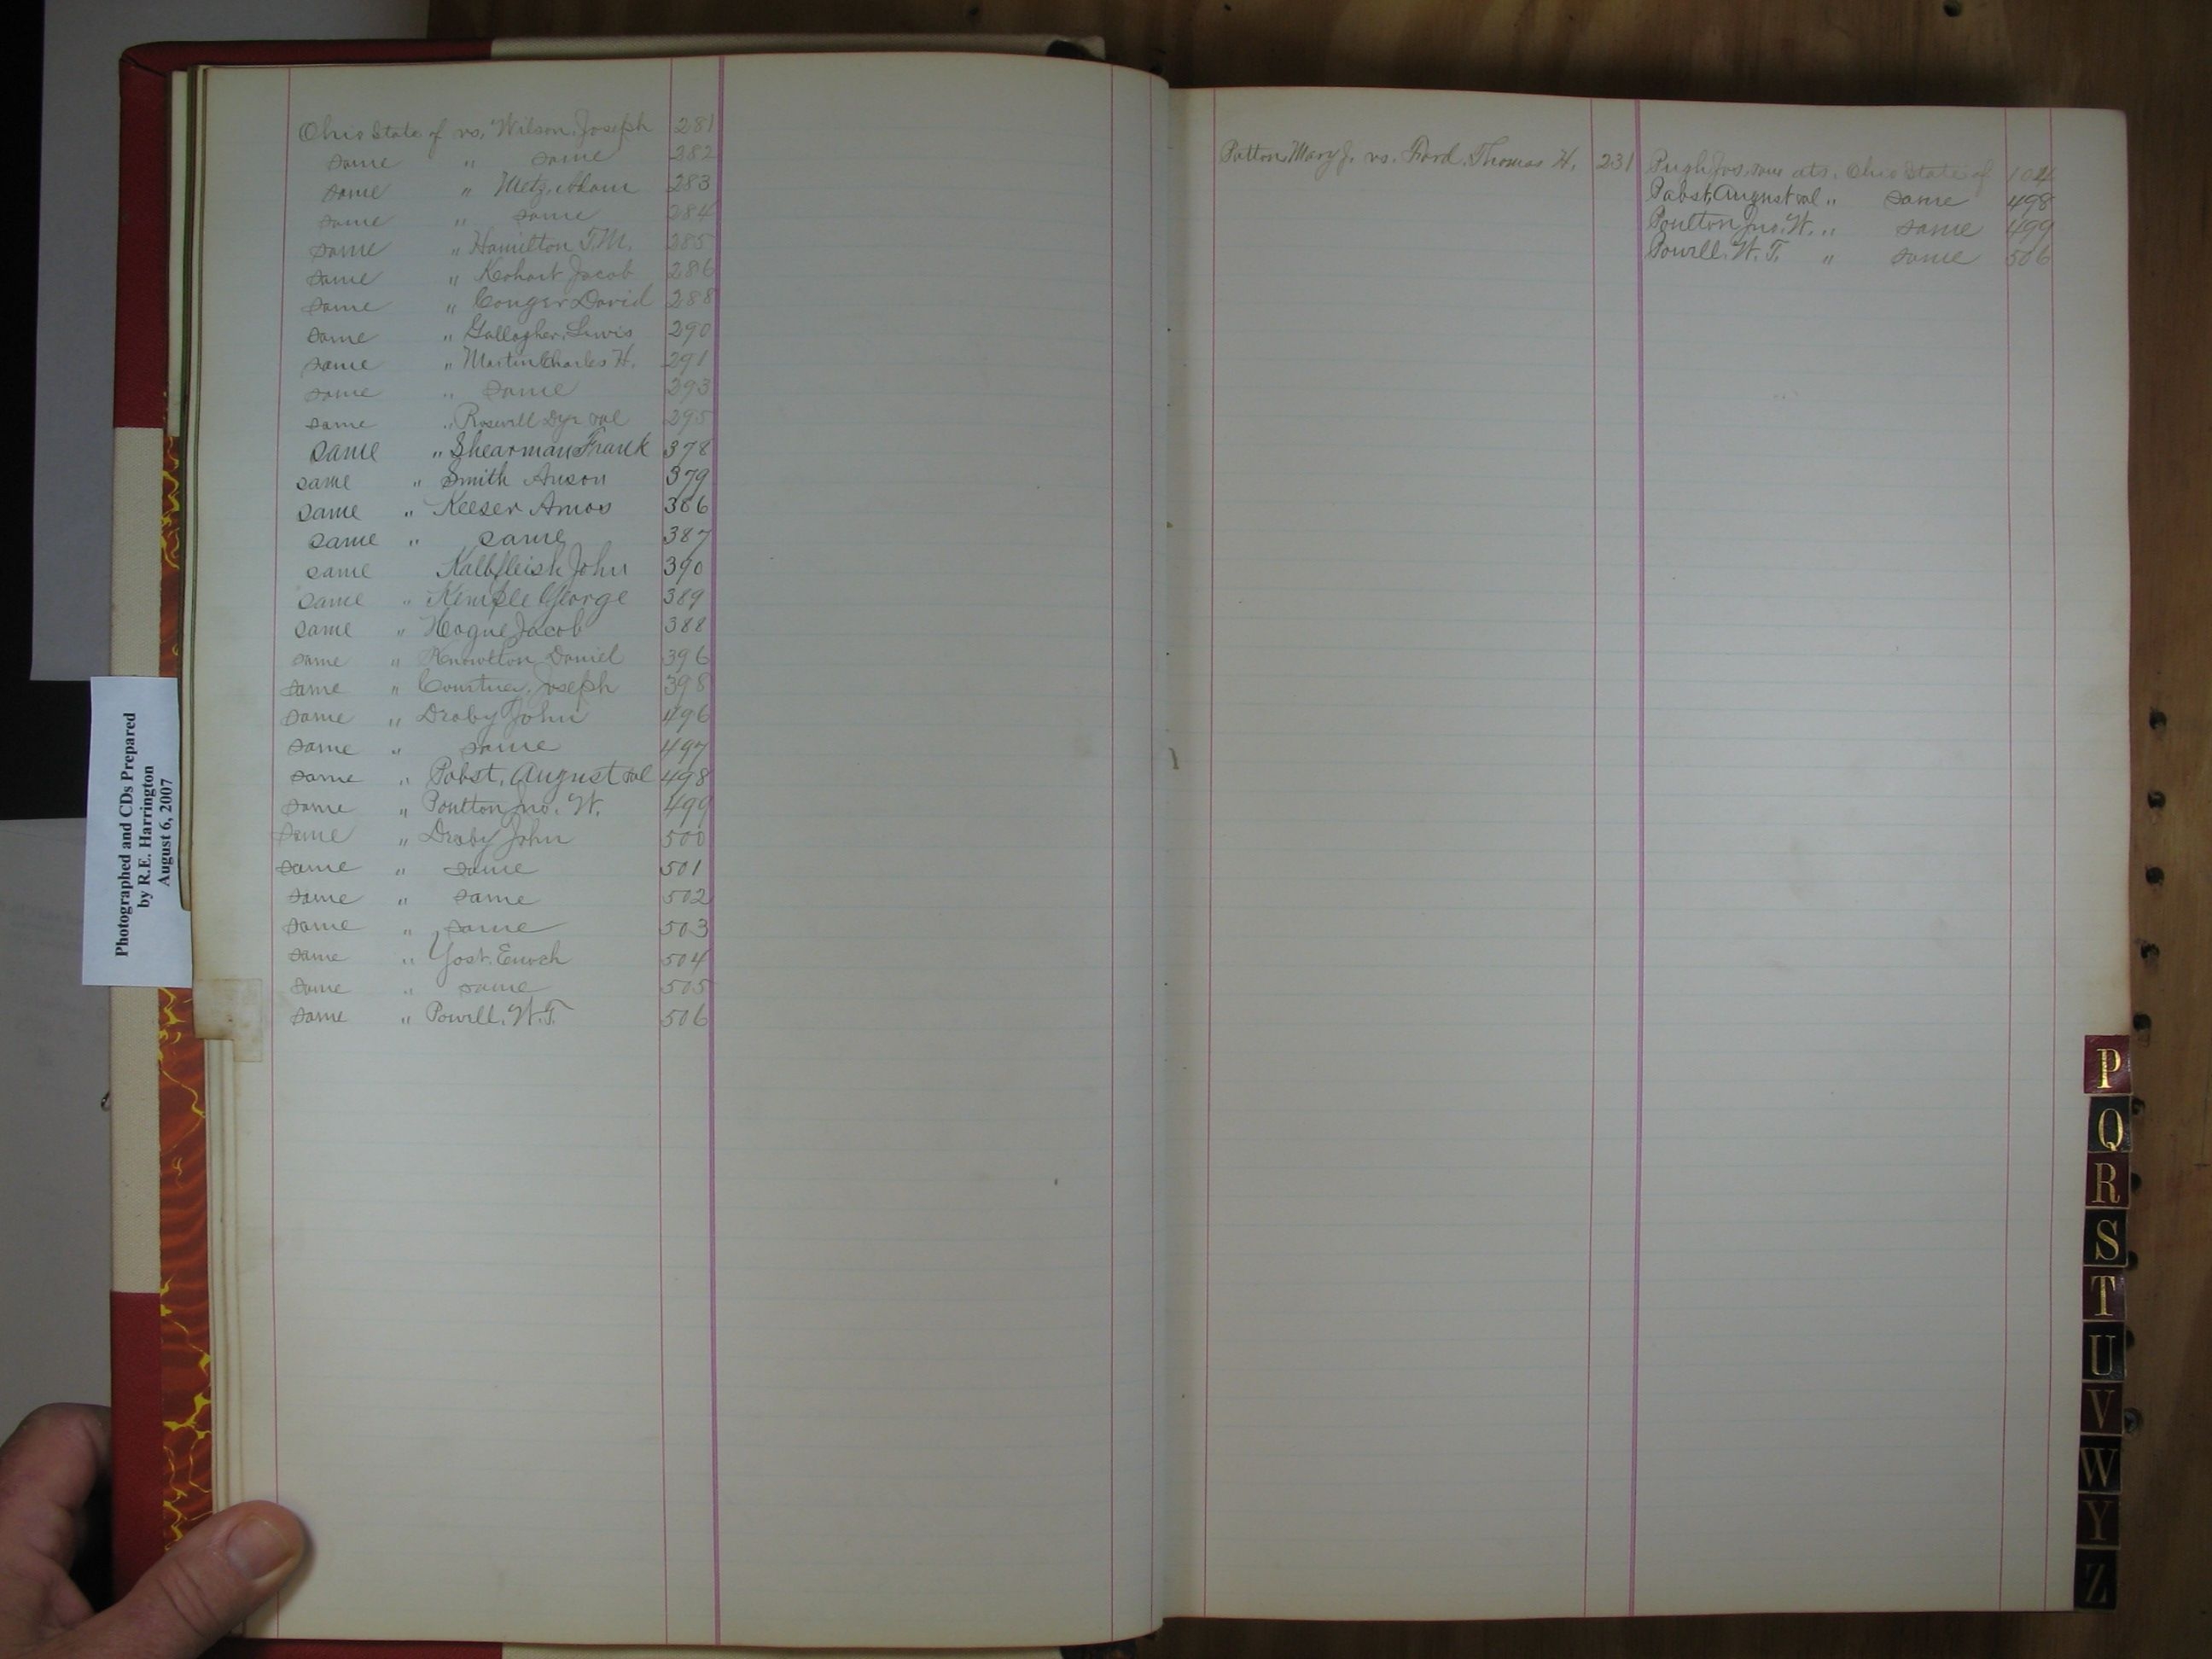 Ohio State of vs. Wilson, Joseph 281
same " same 282
same " Metz, Adam 283
same " same 284
same " Hamilton T.M. 285
same " Kohart Jacob 286
same " Conger David 288
same " Gallagher, Lewis 290
same " Martin Charles H. 291
same " same 293
same " Rosevill 295
same " Shearman Frank 378
same " Smith Anson 379
same " Keeser Amos 386
same " same 387
same Kalbfleish John 390
same " Kemple George 389
same " Hogue Jacob 388
same " Knowlton Daniel 396
same " Courtney, Joseph 398
same " Draby John 496
same " same 497
same " Pabst, August 498
same " Poulton Jno. W. 499
same " Draby John 500
same " same 501
same " same 502
same " same 503
same " Yost, Enoch 504
same " same 505
same " Powell, W.T. 506
Photographed and CDs Prepared
by R.E. Harrington
August 6, 2007
Patton, Mary J. vs. Ford, Thomas H. 231
Pugh Jos. ats. Ohio State of 104
Pabst, August " same 498
Poulton Jno. W. " same 499
Powell, W.T. " same 506
P
Q
R
S
T
U
V
W
Y
Z